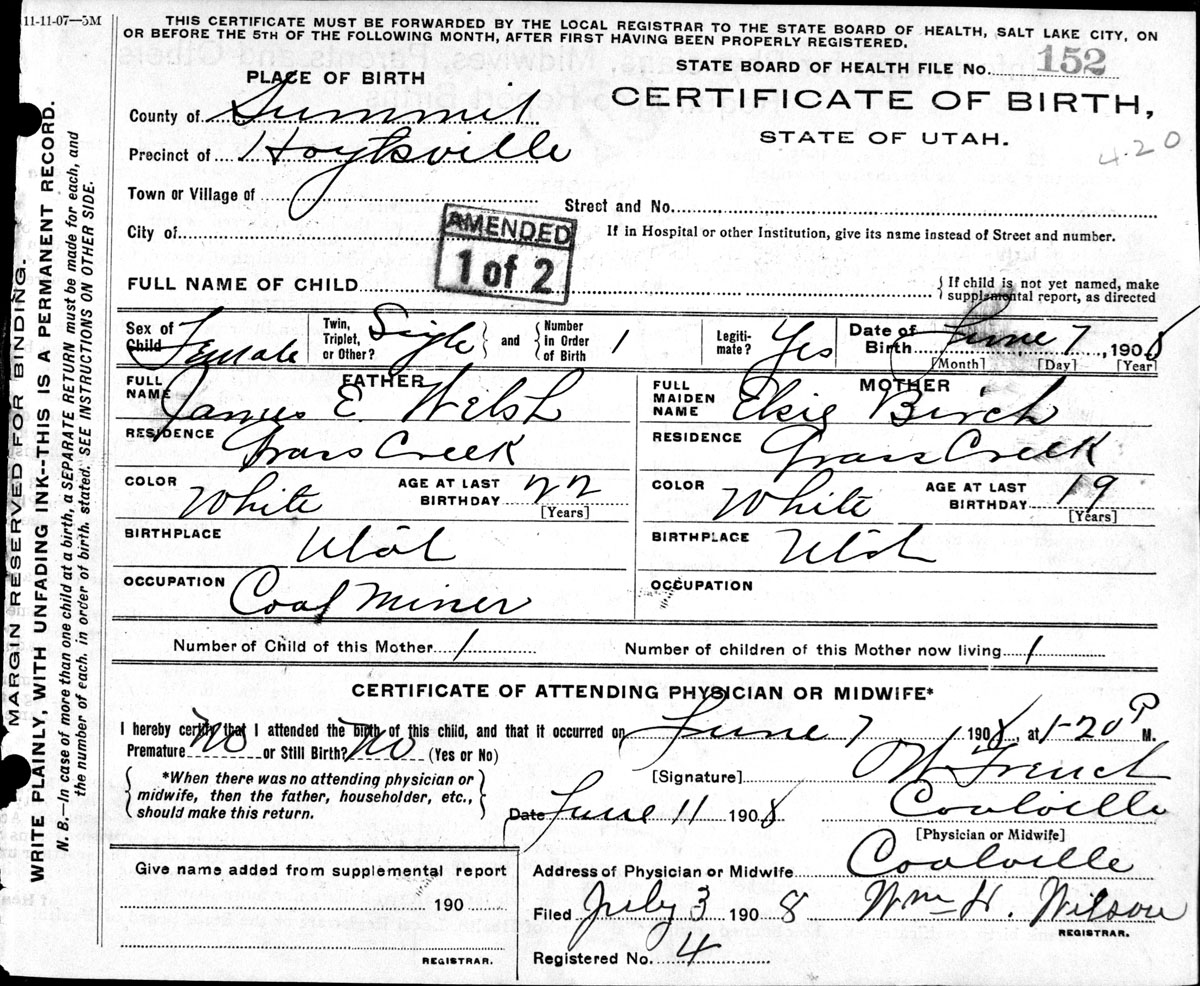 11-11-07—5M
THIS CERTIFICATE MUST BE FORWARDED BY THE LOCAL REGISTRAR TO THE STATE BOARD OF HEALTH, SALT LAKE CITY, ON
OR BEFORE THE 5TH OF THE FOLLOWING MONTH, AFTER FIRST HAVING BEEN PROPERLY REGISTERED.
STATE BOARD OF HEALTH FILE No. 152
CERTIFICATE OF BIRTH,
STATE OF UTAH.
420
PLACE OF BIRTH
County of Summit
Precinct of Hoytsville
Town or Village of
Street and No.
City of
If in Hospital or other Institution, give its name instead of Street and number.
AMENDED
1 of 2
FULL NAME OF CHILD
{If child is not yet named, make
supplemental report, as directed
Sex of Child Female
Twin, Triplet, or Other? Sigle
and {Number in Order of Birth 1
Legitimate? Yes
Date of Birth June 7, 1908
[Month] [Day] [Year]
FATHER
FULL NAME James E Welsh
RESIDENCE Grass Creek
COLOR White
AGE AT LAST BIRTHDAY 22
[Years]
BIRTHPLACE Utah
OCCUPATION Coal Miner
MOTHER
FULL MAIDEN NAME Elsie Birch
RESIDENCE Grass Creek
COLOR White
AGE AT LAST BIRTHDAY 19
[Years]
BIRTHPLACE Utah
OCCUPATION
Number of Child of this Mother 1
Number of children of this Mother now living 1
CERTIFICATE OF ATTENDING PHYSICIAN OR MIDWIFE*
I hereby certify that I attended the birth of this child, and that it occurred on June 7 1908, at 1-20 P M.
Premature No or Still Birth? No (Yes or No)
{*When there was no attending physician or
midwife, then the father, householder, etc.,
should make this return.}
[Signature] French
Date June 11 1908 Coalville
[Physician or Midwife]
Address of Physician or Midwife Coalville
Filed July 3 1908 Wm H. Wilson
REGISTRAR.
Registered No. 4
Give name added from supplemental report
190
REGISTRAR.
MARGIN RESERVED FOR BINDING.
WRITE PLAINLY, WITH UNFADING INK--THIS IS A PERMANENT RECORD.
N. B.—In case of more than one child at a birth, a SEPARATE RETURN must be made for each, and
the number of each, in order of birth, stated. SEE INSTRUCTIONS ON OTHER SIDE.